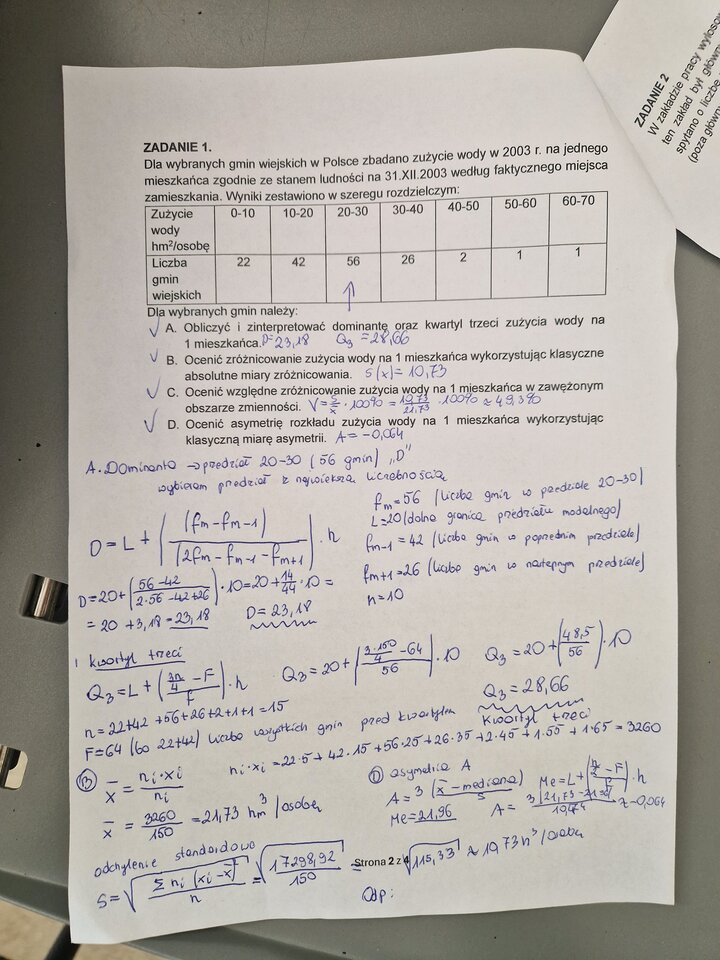 ZADANIE 2
W zakładzie pracy wyloso
ten zakład był główn
spytano o liczbę
(poza główn
ZADANIE 1.
Dla wybranych gmin wiejskich w Polsce zbadano zużycie wody w 2003 r. na jednego
mieszkańca zgodnie ze stanem ludności na 31.XII.2003 według faktycznego miejsca
zamieszkania. Wyniki zestawiono w szeregu rozdzielczym:
Zużycie wody hm²/osobę 0-10 10-20 20-30 30-40 40-50 50-60 60-70
Liczba gmin wiejskich 22 42 56 26 2 1 1
Dla wybranych gmin należy:
A. Obliczyć i zinterpretować dominantę oraz kwartyl trzeci zużycia wody na
1 mieszkańca. D=23,18 Q₃=28,66
B. Ocenić zróżnicowanie zużycia wody na 1 mieszkańca wykorzystując klasyczne
absolutne miary zróżnicowania. S(x)=10,73
C. Ocenić względne zróżnicowanie zużycia wody na 1 mieszkańca w zawężonym
obszarze zmienności. V=s/x̄·100%=10,73/21,73·100%≈49,3%
D. Ocenić asymetrię rozkładu zużycia wody na 1 mieszkańca wykorzystując
klasyczną miarę asymetrii. A=-0,064
A. Dominanta → przedział 20-30 (56 gmin) "D"
wybieram przedział z największą liczebnością
fm=56 (liczba gmin w przedziale 20-30)
L=20 (dolna granica przedziału modalnego)
fm-1=42 (liczba gmin w poprzednim przedziale)
fm+1=26 (liczba gmin w następnym przedziale)
n=10
D=L+((fm-fm-1)/(2fm-fm-1-fm+1))·h
D=20+(56-42/2·56-42+26)·10=20+14/44·10=
=20+3,18=23,18 D=23,18
1 kwartyl trzeci
Q₃=L+((3n/4-F)/f)·h Q₃=20+((3·150/4-64)/56)·10 Q₃=20+(48,5/56)·10
Q₃=28,66
n=22+42+56+26+2+1+1=15 kwartyl trzeci
F=64 (bo 22+42) liczba wszystkich gmin przed kwartylem
ni·xi=22·5+42·15+56·25+26·35+2·45+1·55+1·65=3260
B x̄=ni·xi/ni
x̄=3260/150=21,73 hm³/osobę
D asymetria A
A=3(x̄-mediana)/s Me=L+((n/2-F)/f)·h
Me=21,96 A= ≈-0,064
odchylenie standardowe
S=√(Σni(xi-x̄)²/n)=√(17298,92/150)=√115,33≈10,73 h³/osoba
Strona 2 z 4
Odp: